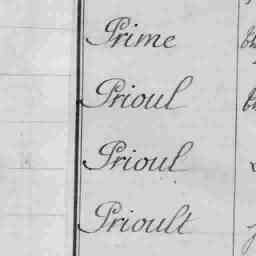 Prime
Prioul
Prioul
Prioult